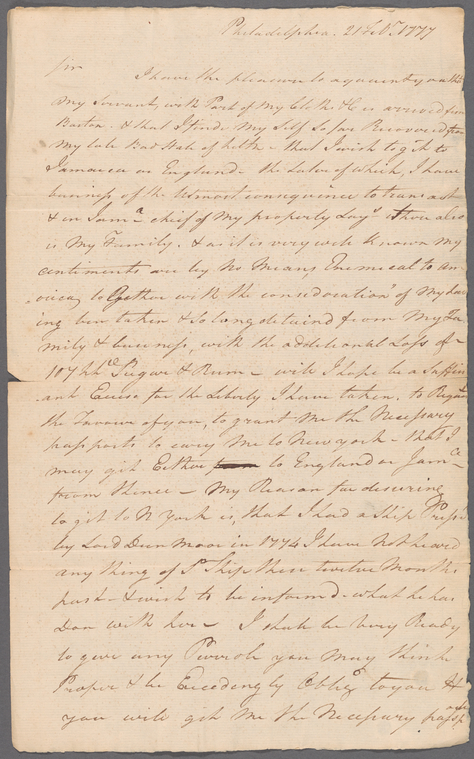 Philadelphia. 21 Febr. 1777
Sir
I have the pleasure to acquaint you that
My Servant, with Part of My Cloths &C is arrived from
Boston. & that I find My Self So far Recovered from
My late Bad State of helth - that I wish to git to
Jamaica or England - the Later of Which, I have
business of the Utmost consequince to transact
& in Jama chief of My property Lays, Where also
is My Family. & as it is very well Known My
centiments are by No Means Enemical to Am
erica, to Gether with the consideration of My hav
ing ben taken & So long detaind from My Fa
mily & business, with the additional Loss of
107 hhds Sugar & Rum - will I hope be a Suffici
ant Excuse for the Liberty I have taken, to Request
the Favour of you, to grant Me the Necessary
passports to carry Me to New york - that I
may git Either to England or Jamca
from thence - My Reason for desiring
to git to N York is, that I had a Ship
by Lord Dunmoor in 1774 I have Not heard
any thing of Sd Ship these twelve Months
past - & wish to be informd - what he has
Don with her - I shall be Very Ready
to give any Perrole you May think
Proper & be Exceedingly Obligd to you If
you will git Me the Necessary passports